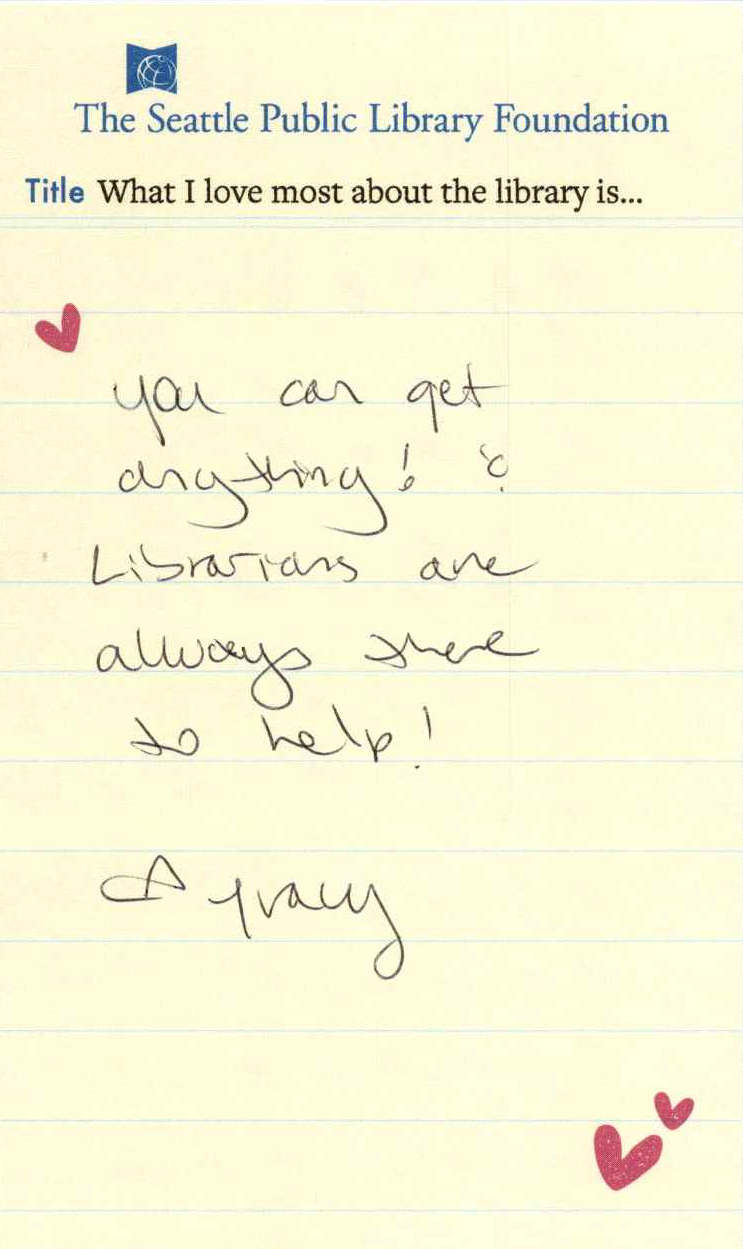 The Seattle Public Library Foundation
Title What I love most about the library is...
you can get
anything! &
Librarians are
always there
to help!
♡ Tracy